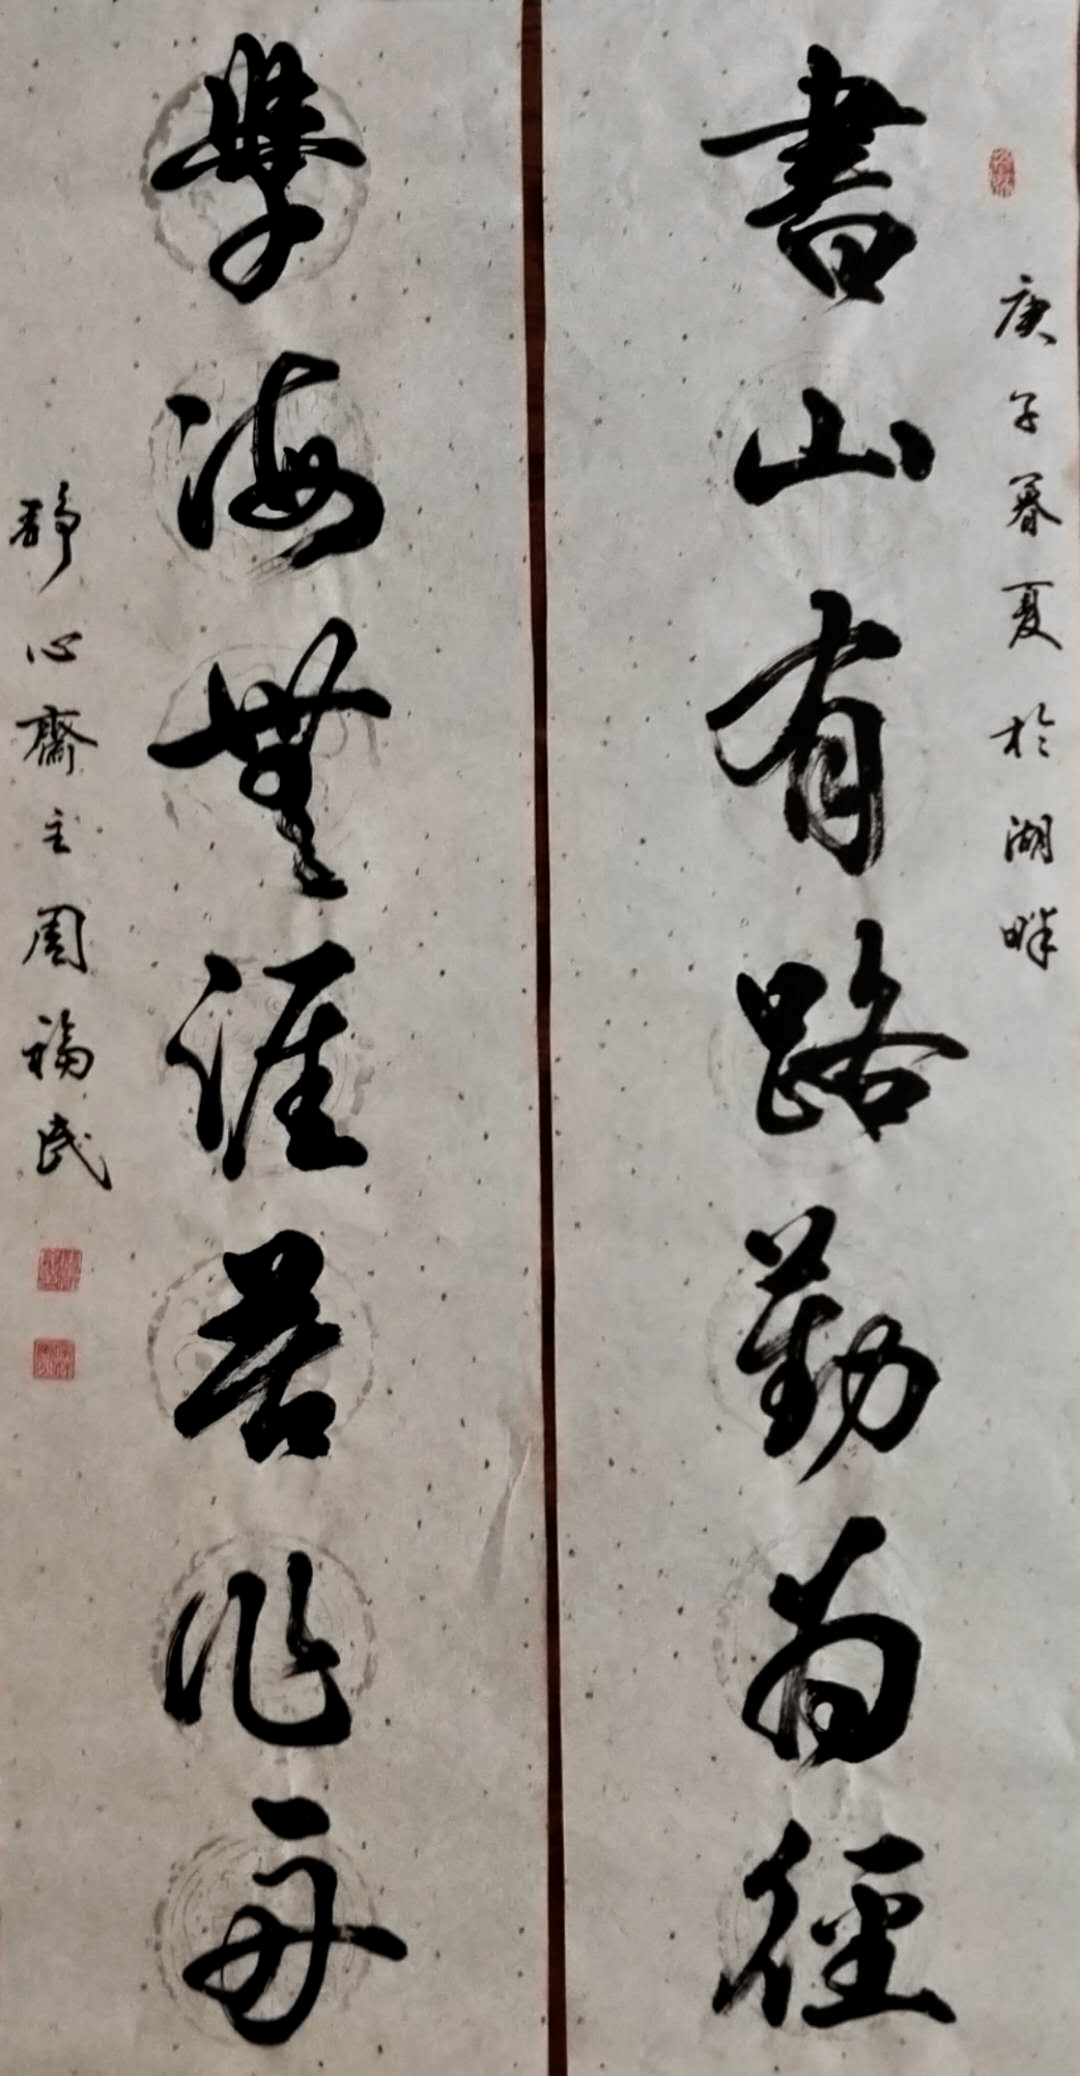 庚子暮夏於湖畔
書山有路勤為徑
學海無涯苦作舟
靜心齋主周福民